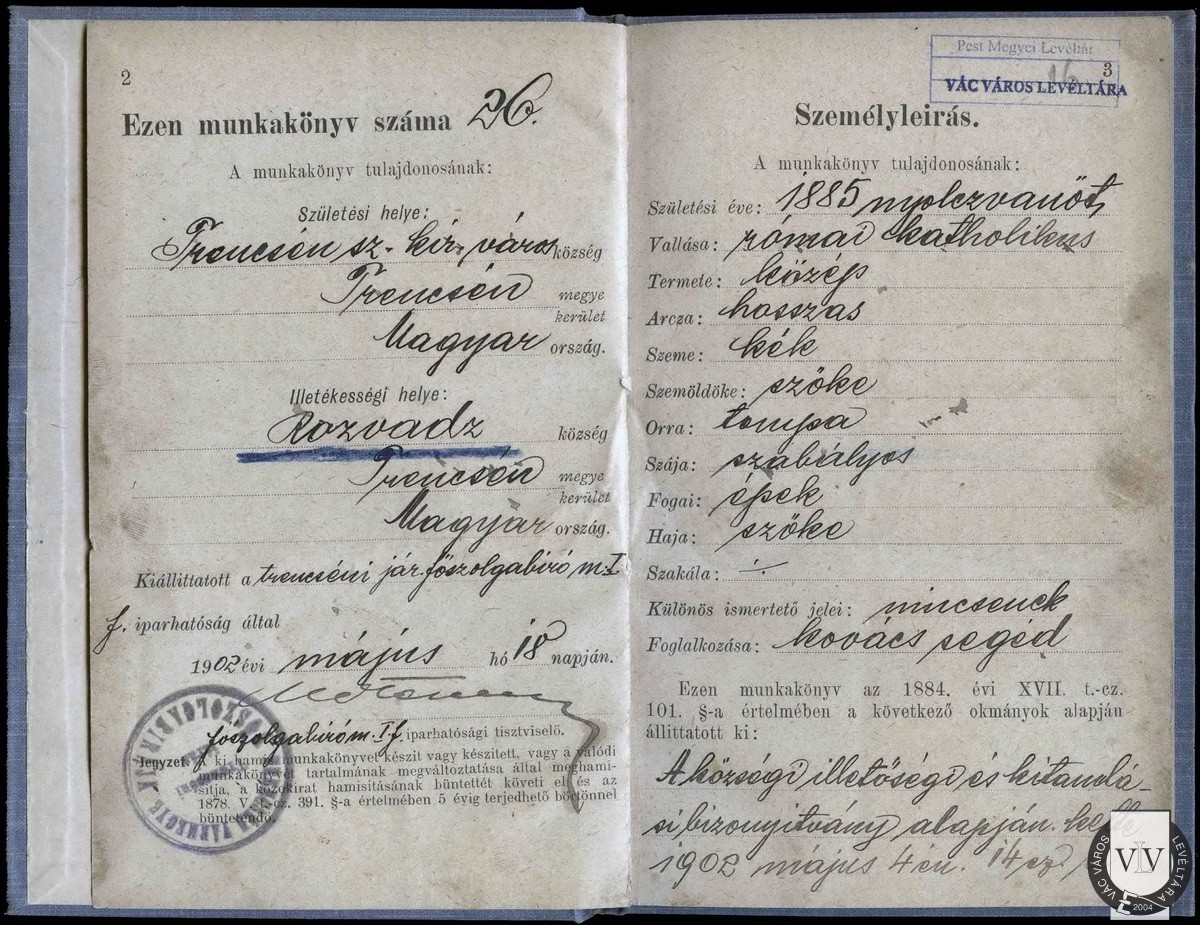 2
Ezen munkakönyv száma 26.
A munkakönyv tulajdonosának:
Születési helye:
Trencsén sz. kir. város község
Trencsén megye
kerület
Magyar ország.
Illetékességi helye:
Rozvadz község
Trencsén megye
kerület
Magyar ország.
Kiállittatott a trencséni jár. főszolgabíró m. I
f. iparhatóság által
1902 évi május hó 18 napján.
főszolgabíró m. I f iparhatósági tisztviselő.
Jegyzet. A ki hamis munkakönyvet készit vagy készíttet, vagy a valódi
munkakönyvet tartalmának megváltoztatása által meghami-
sítja, a közokirat hamisításának büntettét követi el és az
1878. V. t.-cz. 391. §-a értelmében 5 évig terjedhető börtönnel
büntetendő.
Pest Megyei Levéltár
16
3
VÁC VÁROS LEVÉLTÁRA
Személyleirás.
A munkakönyv tulajdonosának:
Születési éve: 1885 nyolczvanöt
Vallása: római katholikus
Termete: közép
Arcza: hosszas
Szeme: kék
Szemöldöke: szőke
Orra: tompa
Szája: szabályos
Fogai: épek
Haja: szőke
Szakála: -·/·-
Különös ismertető jelei: nincsenek
Foglalkozása: kovács segéd
Ezen munkakönyv az 1884. évi XVII. t.-cz.
101. §-a értelmében a következő okmányok alapján
állittatott ki:
A községi illetőségi és kitanulá-
si bizonyitvány alapján. kelt
1902 május 4én. 14 sz
VÁC VÁROS LEVÉLTÁRA
VLV
2004